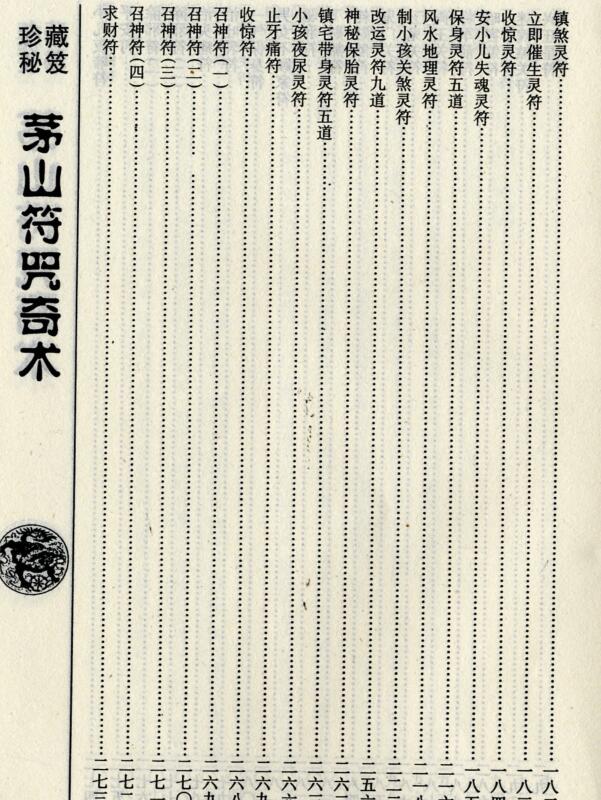 镇煞灵符……一八
立即催生灵符……一八
收惊灵符……一八四
安小儿失魂灵符……一八
保身灵符五道……二一
风水地理灵符……二一
制小孩关煞灵符……二二
改运灵符九道……二五
神秘保胎灵符……二六
镇宅带身灵符五道……二六
小孩夜尿灵符……二六
止牙痛符……二六
收惊符……二六八
召神符(一)……二六九
召神符(二)……二七〇
召神符(三)……二七一
召神符(四)……二七二
求财符……二七三
藏笈
珍秘
茅山符咒奇术